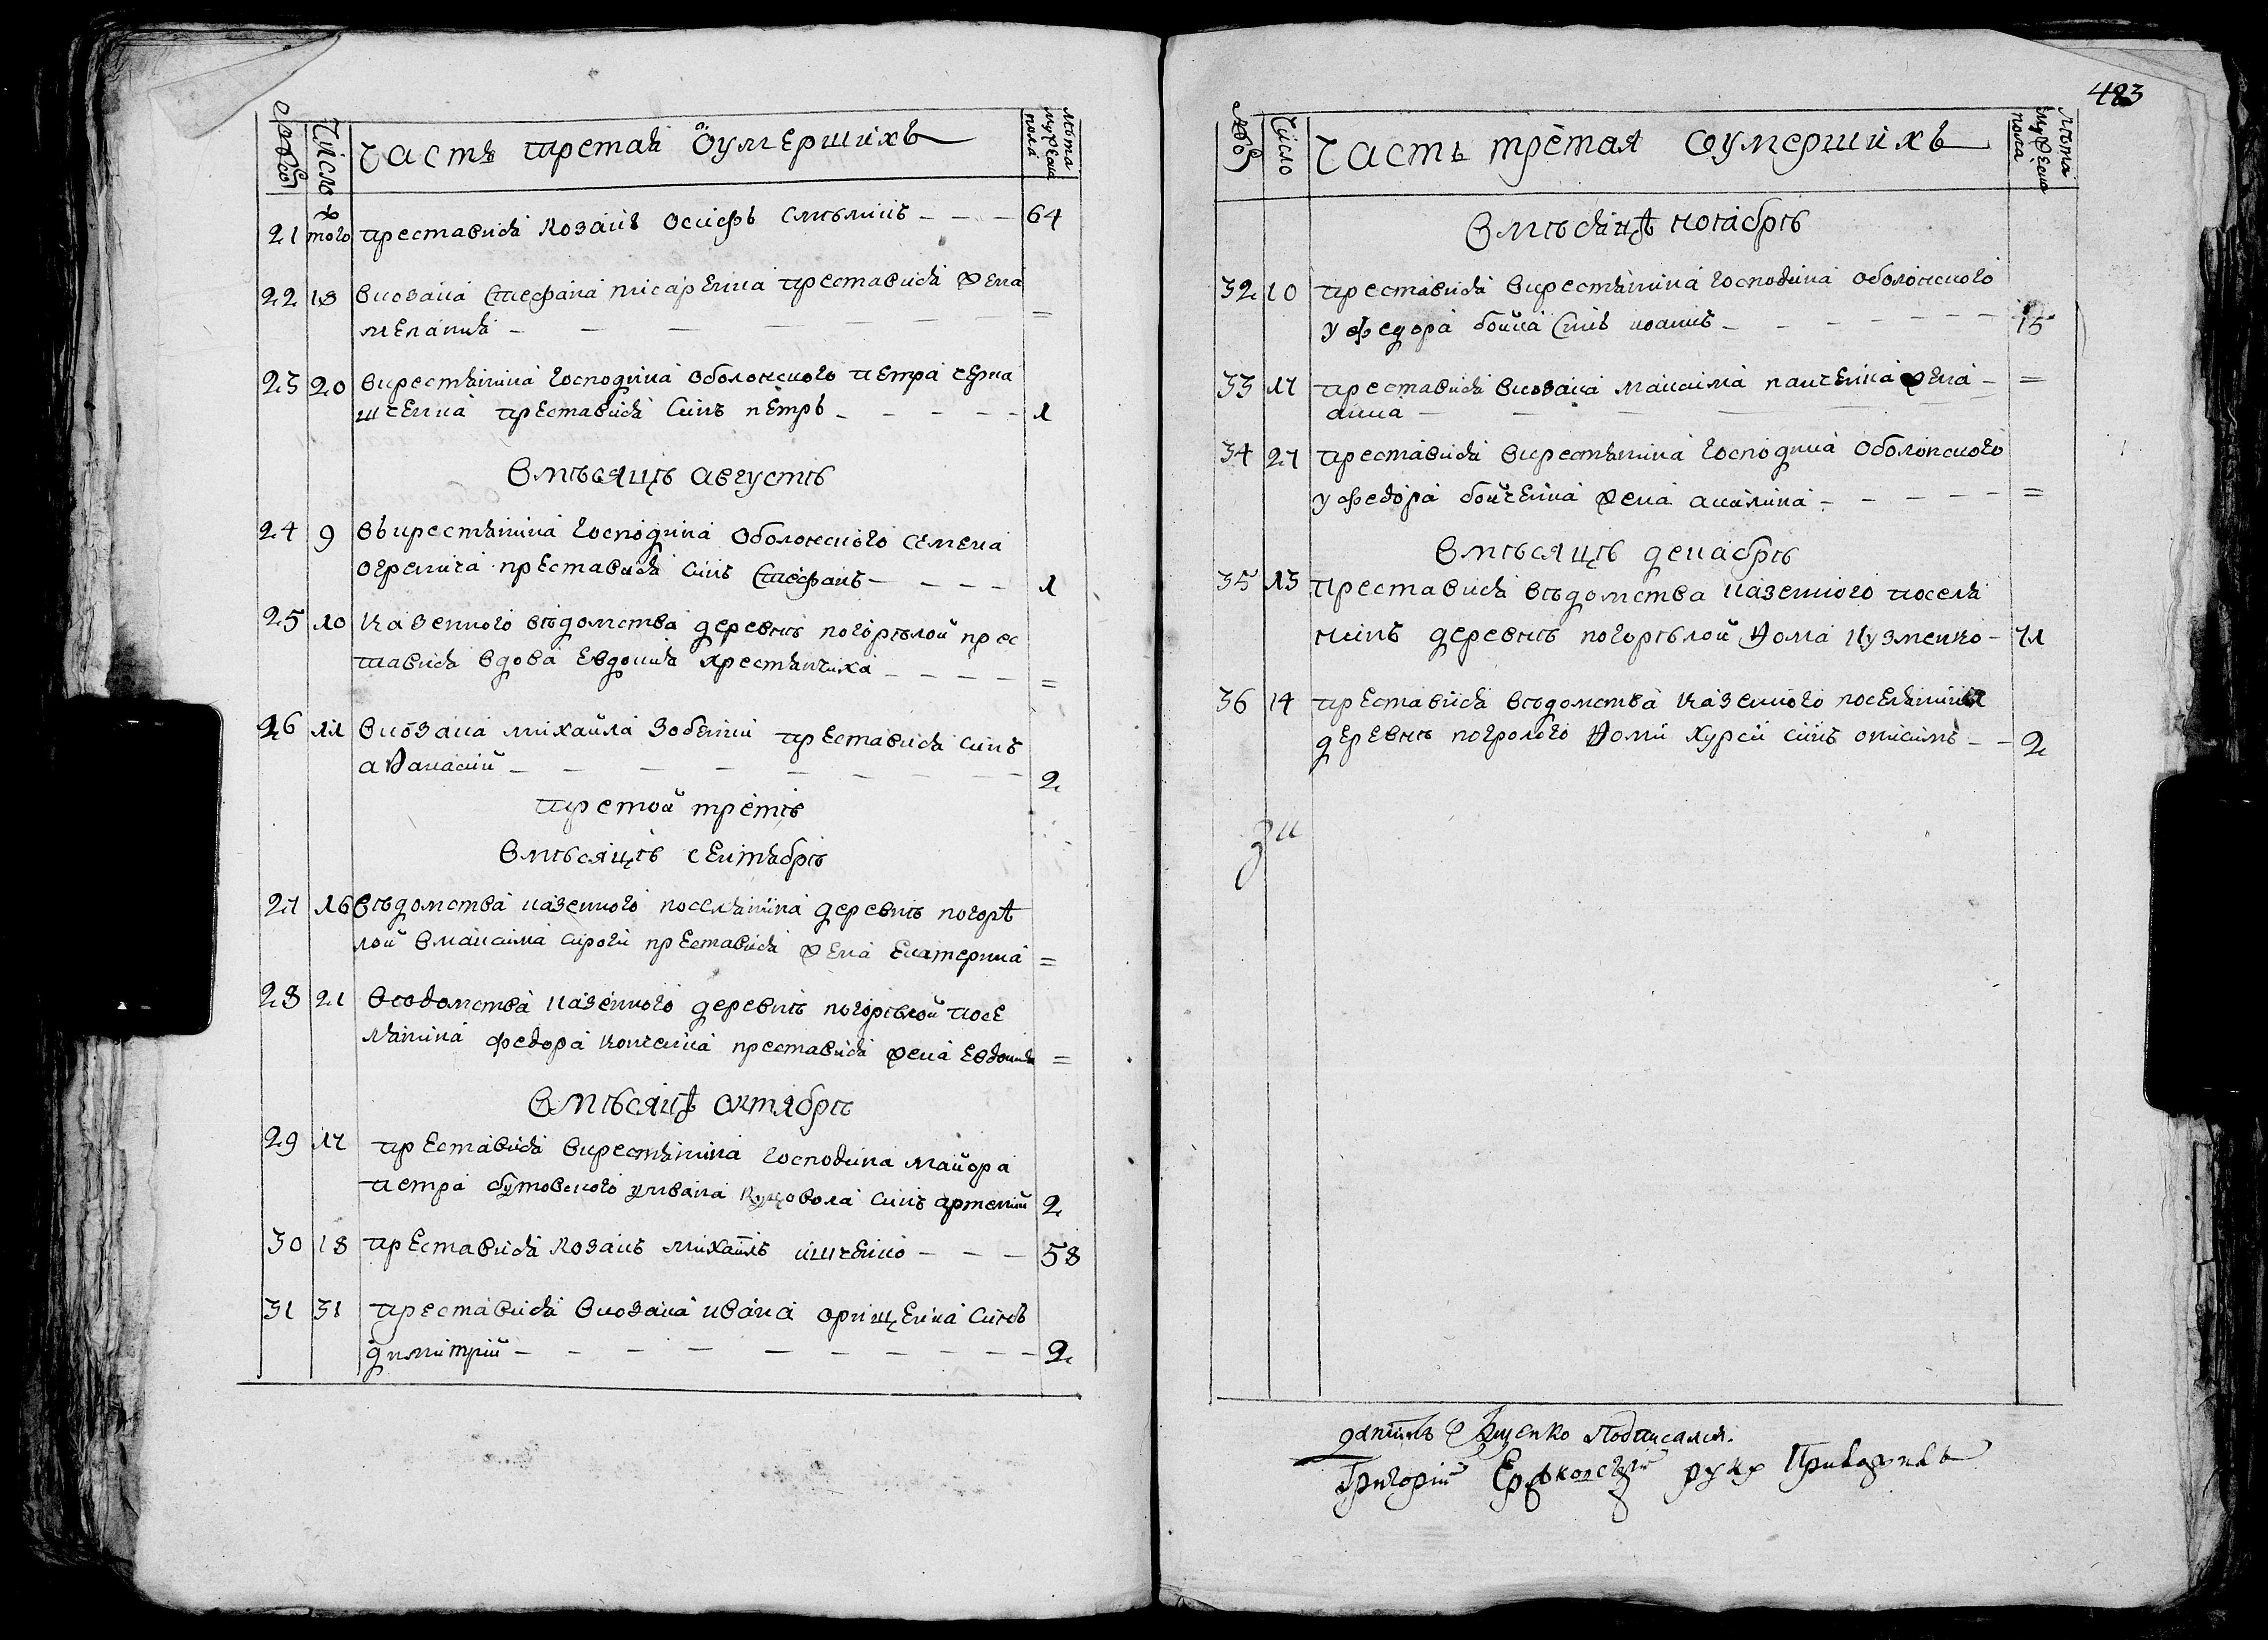 Число
Часть третая оумершихъ
лѣта мужеска пола
21 того преставися козакъ осифъ смѣликъ - - - 64
22 18 вкозака стефана писаренка преставися жена
мелания - - - =
23 20 вкрестянина господина оболонского петра черка
щенка преставися синъ петръ - - - - - 1
вмѣсяцѣ августѣ
24 9 въкрестянина господина оболонского семена
преставися синъ стефанъ - - - - 1
25 10 казенного вѣдомства деревнѣ погорѣлой прес
тавися вдова евдокия хрестянчиха - - - - =
26 11 вкозака михайла преставися синъ
аѳанасий - - - 2
третой третѣ
вмѣсяцѣ сентябрѣ
27 16 вѣдомства казенного поселянина деревнѣ погорѣ
лой вмаксима сироги преставися жена екатерина =
28 21 вѣдомства казенного деревнѣ погорѣлой посе
лянина федора преставися жена евдокия =
вмѣсяцѣ октябрѣ
29 17 преставися вкрестянина господина майора
петра бутовского уивана куцовола синъ артемий 2
30 18 преставися козакъ михаилъ ищенко - - - 58
31 31 преставися вкозака ивана орищенка синъ
димитрий - - - 2
483
Число
Часть третая оумершихъ
лѣта мужеска пола
вмѣсяцѣ ноябрѣ
32 10 преставися вкрестянина господина оболонского
у федора бойка синъ иоанъ - - - 15
33 17 преставися вкозака максима панченка жена - =
анна - - -
34 27 преставися вкрестянина господина оболонского
у федора бойченка жена акилина - - - =
вмѣсяцѣ декабрѣ
35 13 преставися вѣдомства казенного поселя
нинъ деревнѣ погорѣлой ѳома кузменко - 71
36 14 преставися вѣдомства казенного поселянина
деревнѣ ѳоми хурси синъ онисимъ - - 2
даниилъ подписался.
Григорий руку Приложилъ